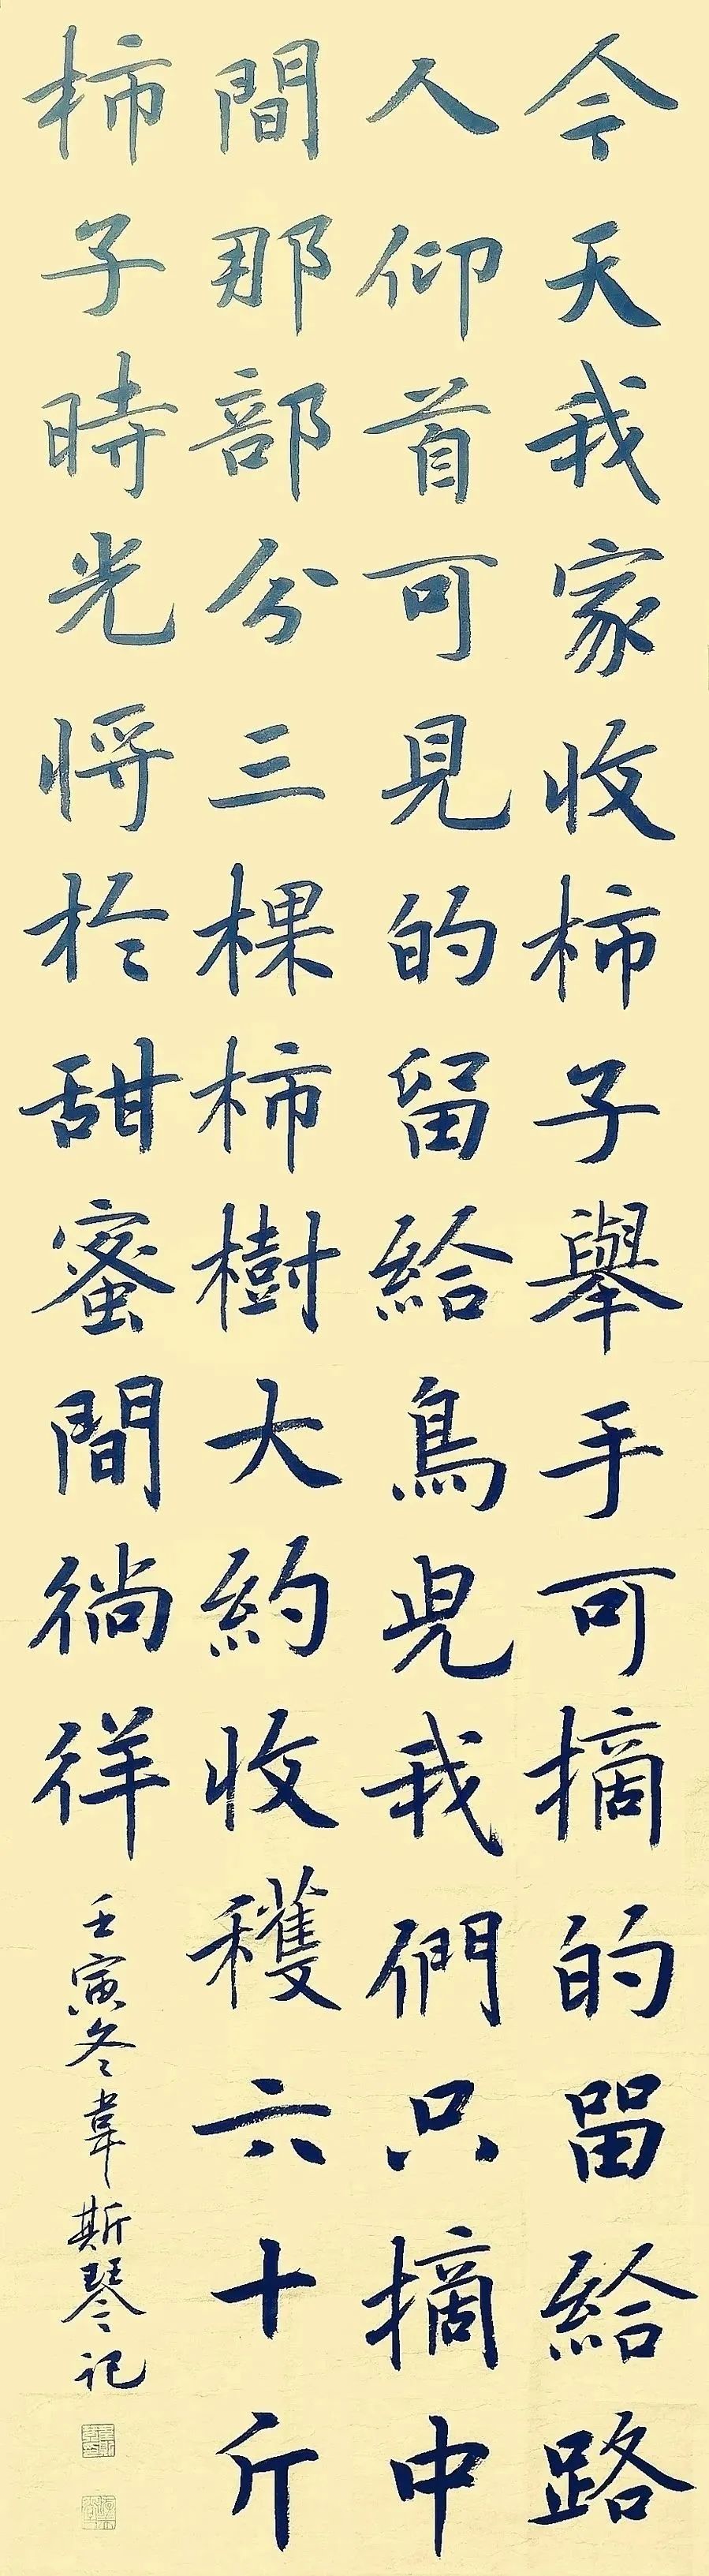 今天我家收柿子舉手可摘的留給路
人仰首可見的留給鳥兒我們只摘中
間那部分三棵柿樹大約收穫六十斤
柿子時光將於甜蜜間徜徉
壬寅冬韋斯琴記